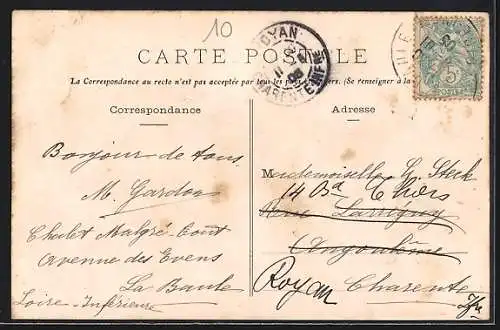 10
CARTE POSTALE
La Correspondance au recto n'est pas acceptée par tous les pays étrangers. (Se renseigner à la
Correspondance
Adresse
ROYAN
CHARENTE INFRE
5
POSTES
Bonjour de tous
M. Gardon
Chalet Malgré-tout
avenue des Evens
La Baule
Loire-Inférieure
Mademoiselle G. Steck
14 Bd Thiers
Rue Lartigny
Angoulême
Royan Charente Infre